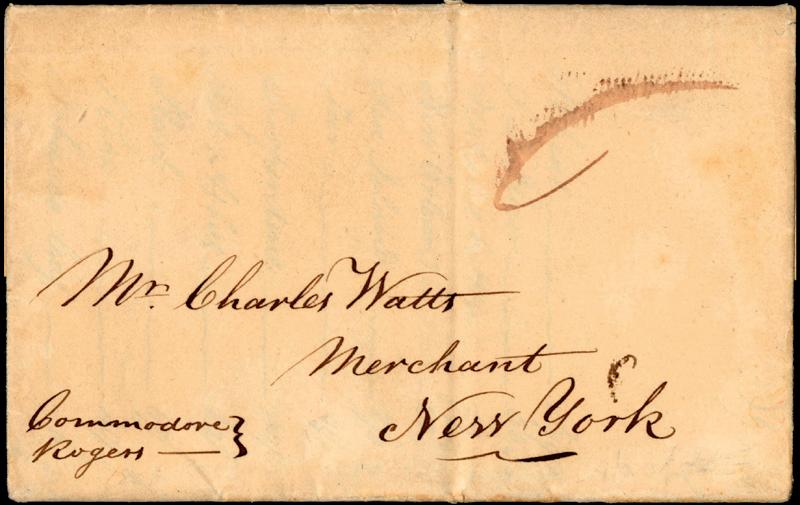 Mr. Charles Watts
Merchant
New York
Commodore
Rogers